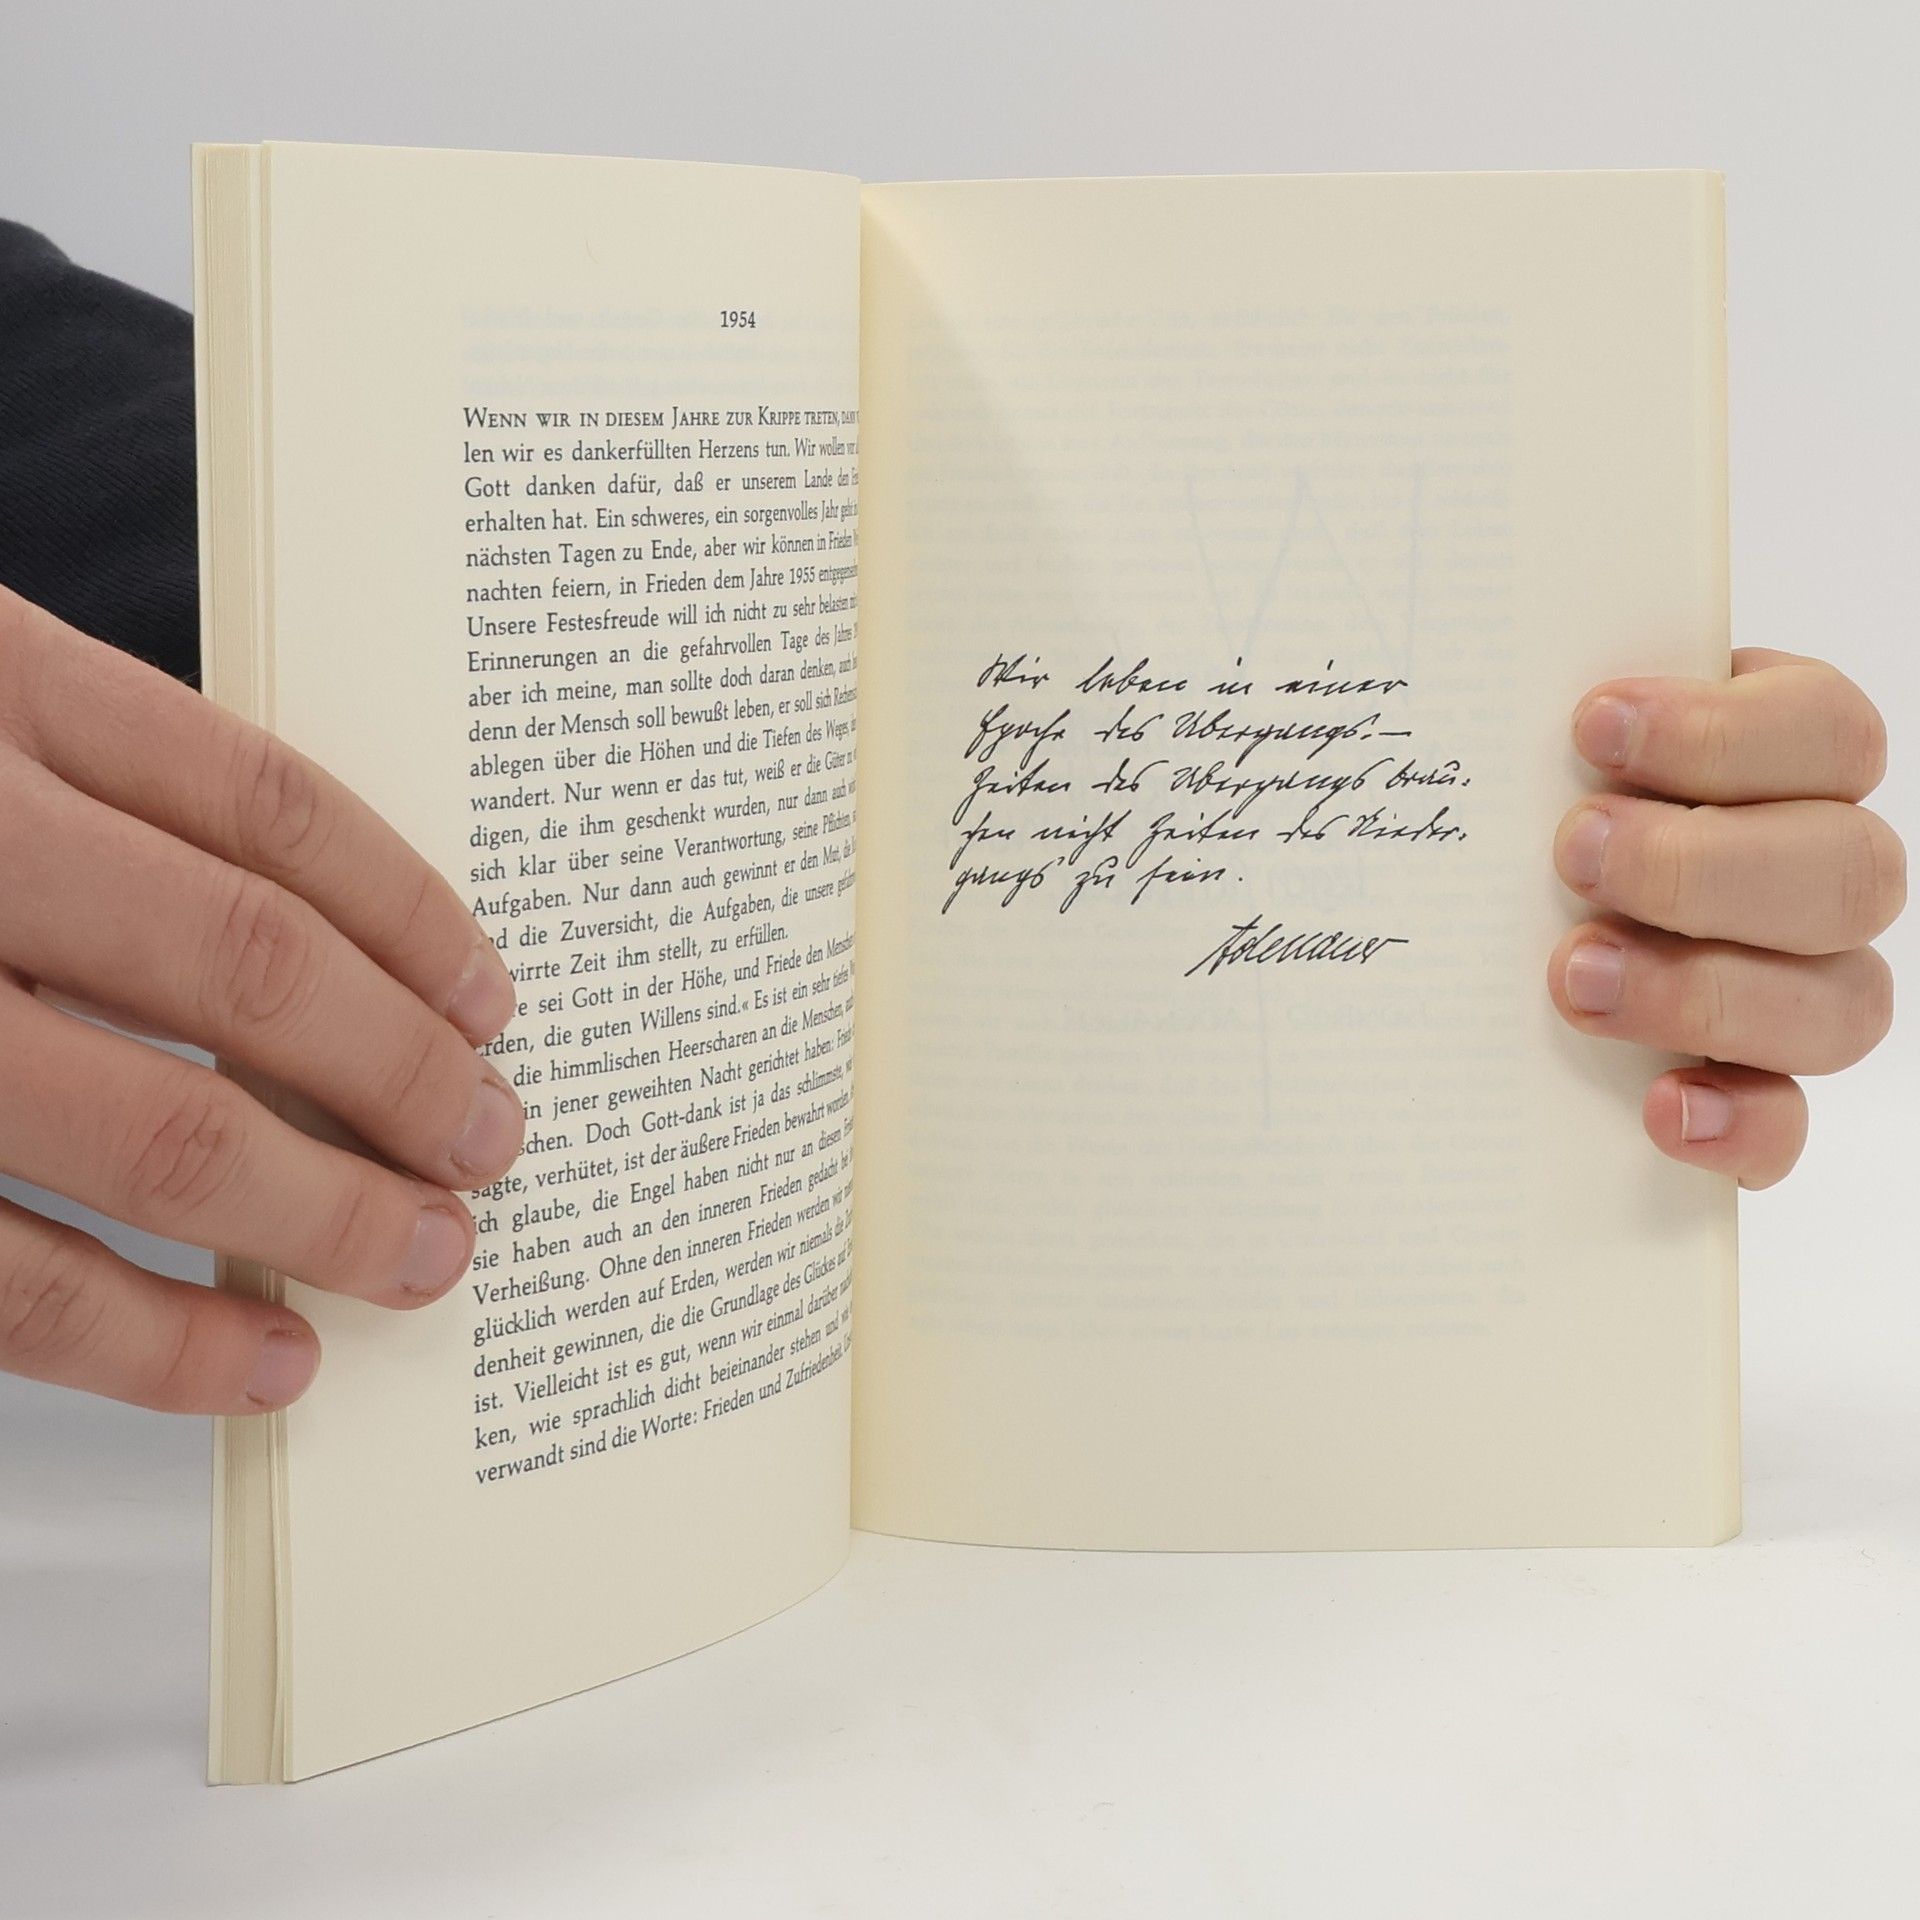 1954
WENN WIR IN DIESEM JAHRE ZUR KRIPPE TRETEN, DANN
len wir es dankerfüllten Herzens tun. Wir wollen vor
Gott danken dafür, daß er unserem Lande den
erhalten hat. Ein schweres, ein sorgenvolles Jahr geht
nächsten Tagen zu Ende, aber wir können in Frieden
nachten feiern, in Frieden dem Jahre 1955
Unsere Festesfreude will ich nicht zu sehr belasten
Erinnerungen an die gefahrvollen Tage des Jahres
aber ich meine, man sollte doch daran denken, auch
denn der Mensch soll bewußt leben, er soll sich
ablegen über die Höhen und die Tiefen des Weges,
wandert. Nur wenn er das tut, weiß er die Güter zu
digen, die ihm geschenkt wurden, nur dann auch
sich klar über seine Verantwortung, seine Pflichten,
Aufgaben. Nur dann auch gewinnt er den Mut, die
nd die Zuversicht, die Aufgaben, die unsere
wirrte Zeit ihm stellt, zu erfüllen.
re sei Gott in der Höhe, und Friede den Menschen
Erden, die guten Willens sind.« Es ist ein sehr tiefes
die himmlischen Heerscharen an die Menschen,
in jener geweihten Nacht gerichtet haben: Friede
schen. Doch Gott-dank ist ja das schlimmste,
sagte, verhütet, ist der äußere Frieden bewahrt worden.
ich glaube, die Engel haben nicht nur an diesen
sie haben auch an den inneren Frieden gedacht bei
Verheißung. Ohne den inneren Frieden werden wir
glücklich werden auf Erden, werden wir niemals die
denheit gewinnen, die die Grundlage des Glückes auf
ist. Vielleicht ist es gut, wenn wir einmal darüber
ken, wie sprachlich dicht beieinander stehen und wie
verwandt sind die Worte: Frieden und Zufriedenheit.
Wir leben in einer
Epoche des Übergangs. —
Zeiten des Übergangs brau-
chen nicht Zeiten des Nieder-
gangs zu sein.
Adenauer